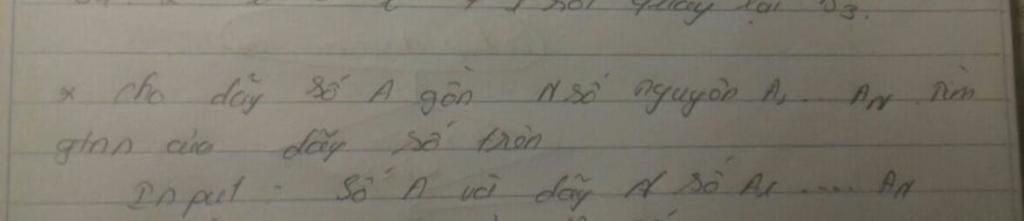 quay lại B3.
* cho dãy số A gồn N số nguyên A1 ... AN tìm
gtnn của dãy số trên
Input : Số A và dãy N số A1 ..... AN